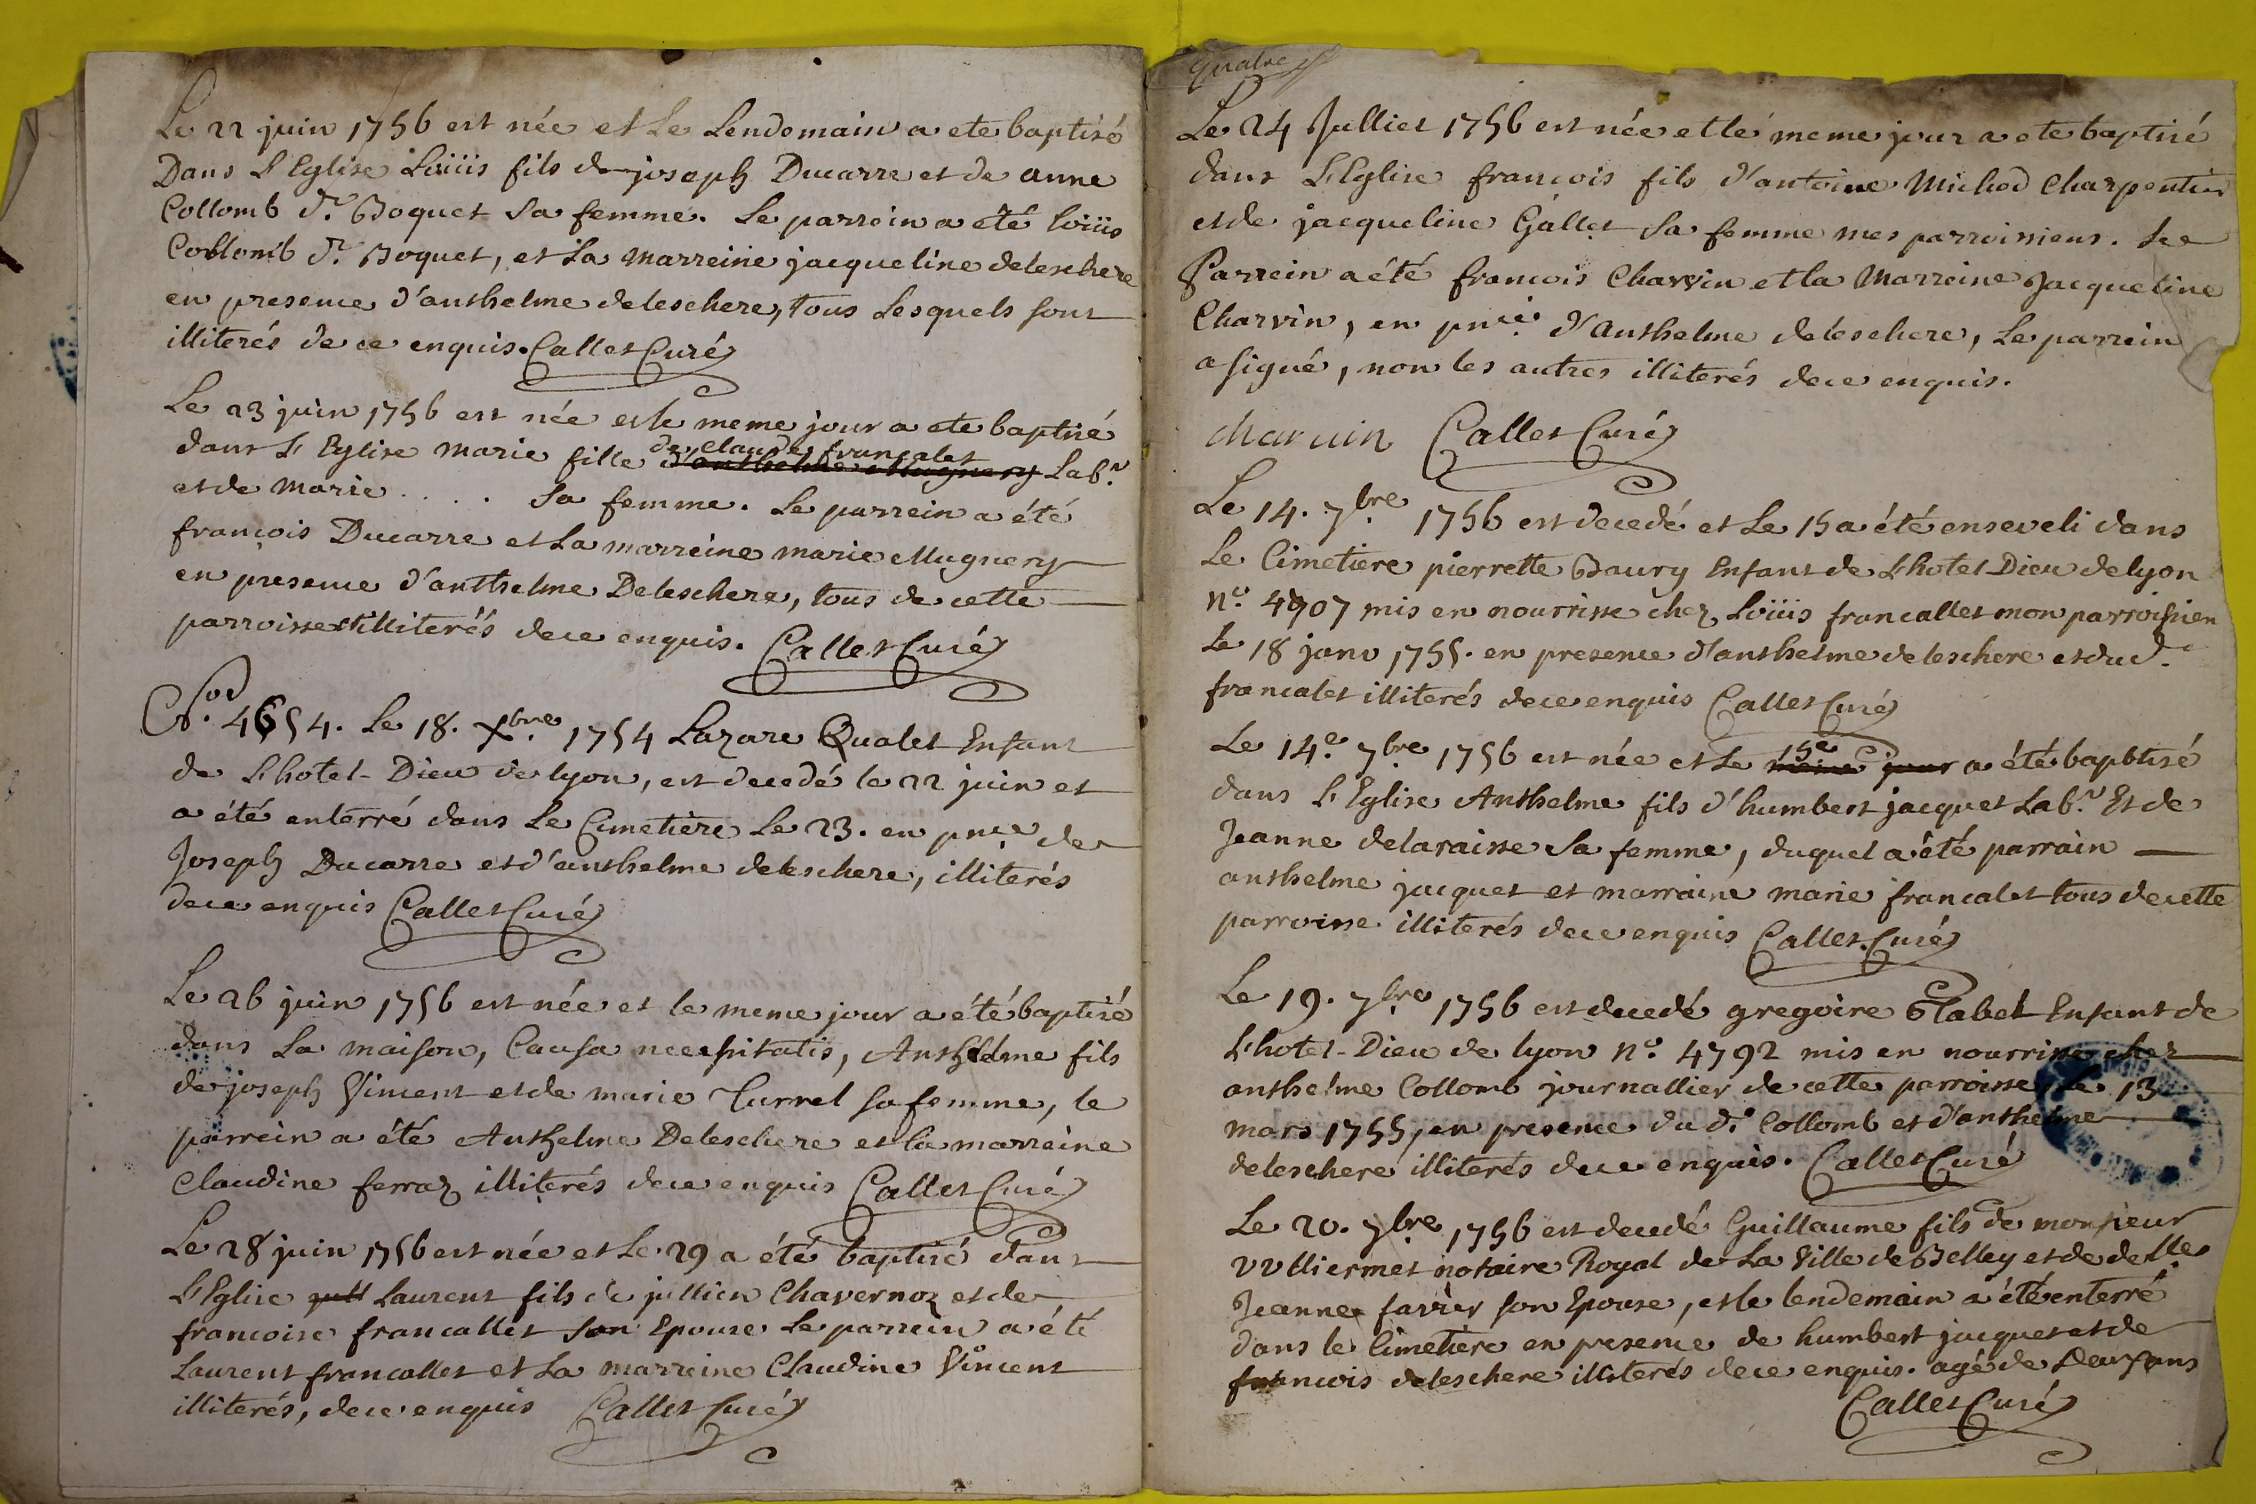 Le 22 juin 1756 est née et Le Lendomain a ete baptisé
Dans L'Eglise Loüis fils de joseph Ducarre et de anne
Collomb dt. Boquet sa femme. Le parrein a été loüis
Collomb dt. Boquet, et La Marreine jacqueline deleschere
en presence d'anthelme deleschere, tous Lesquels sont
illiterés de ce enquis. Callet Curé
Le 23 juin 1756 est née et le meme jour a ete baptisé
dans L'Eglise marie fille de claude francalet d'anthelme Mugnery Labr.
et de marie . . . . sa femme. Le parrein a été
françois Ducarre et La marreine marie Mugnery
en presence d'anthelme Deleschere, tous de cette
parroisse et illiterés de ce enquis. Callet Curé
No. 4654. Le 18. Xbre. 1754 Lazare Qualet Enfant
de L'hotel-Dieu de lyon, est decedé le 22 juin et
a été enterré dans Le Cimetiere Le 23. en pnce. de
Joseph Ducarre et d'anthelme deleschere, illiterés
de ce enquis Callet Curé
Le 26 juin 1756 est née et le meme jour a été baptisé
dans La maison, Causa necessitatis, Anthelme fils
de joseph Vincent et de marie Turrel sa femme, le
parrein a été Anthelme Deleschere et la marreine
Claudine ferraz illiterés de ce enquis Callet Curé
Le 28 juin 1756 est née et Le 29 a été baptisé dans
L'Eglise Laurent fils de jullien Chavernoz et de
francoise francallet son Epouse Le parrein a été
Laurent francallet et La marreine Claudine Vincent
illiterés, de ce enquis Callet Curé
quatre
Le 24 Julliet 1756 est née et le meme jour a ete baptisé
dans L'Eglise francois fils d'antoine Michod Charpentier
et de jacqueline Gallet sa femme mes parroissiens. Le
Parrein a été francois Charvin et la Marreine Jacqueline
Charvin, en pnce. d'Anthelme deleschere, Le parrein
a signé, non les autres illiterés de ce enquis.
charuin Callet Curé
Le 14. 7bre. 1756 est decedé et Le 15 a été enseveli dans
Le Cimetiere pierrette Baury Enfant de L'hotel-Dieu de lyon
no. 4907 mis en nourrisse chez Loüis francallet mon parroissien
Le 18 janv 1755. en presence d'anthelme deleschere et dud.
francalet illiterés de ce enquis Callet Curé
Le 14e. 7bre 1756 est née et Le meme jour 15e a été bapbtisé
dans L'Eglise Anthelme fils d'humbert jacquet Labr. Et de
Jeanne delaraisse sa femme, duquel a été parrain
anthelme jacquet et marraine marie francalet tous de cette
parroisse illiterés de ce enquis Callet Curé
Le 19. 7bre 1756 est decedé gregoire Tabet Enfant de
L'hotel-Dieu de lyon no. 4792 mis en nourrisse chez
anthelme Collomb journallier de cette parroisse, Le 13
mars 1755, en presence du dt. Collomb et d'anthelme
deleschere illiterés de ce enquis. Callet Curé
Le 20. 7bre 1756 est decedé Guillaume fils de monsieur
vulliermet notaire Royal de La Ville de Belley et de delle.
Jeanne favrer son Epouse, et le lendemain a été enterré
dans le Cimetiere en presence de humbert jacquet et de
francois deleschere illiterés de ce enquis. agé de Deux ans
Callet Curé